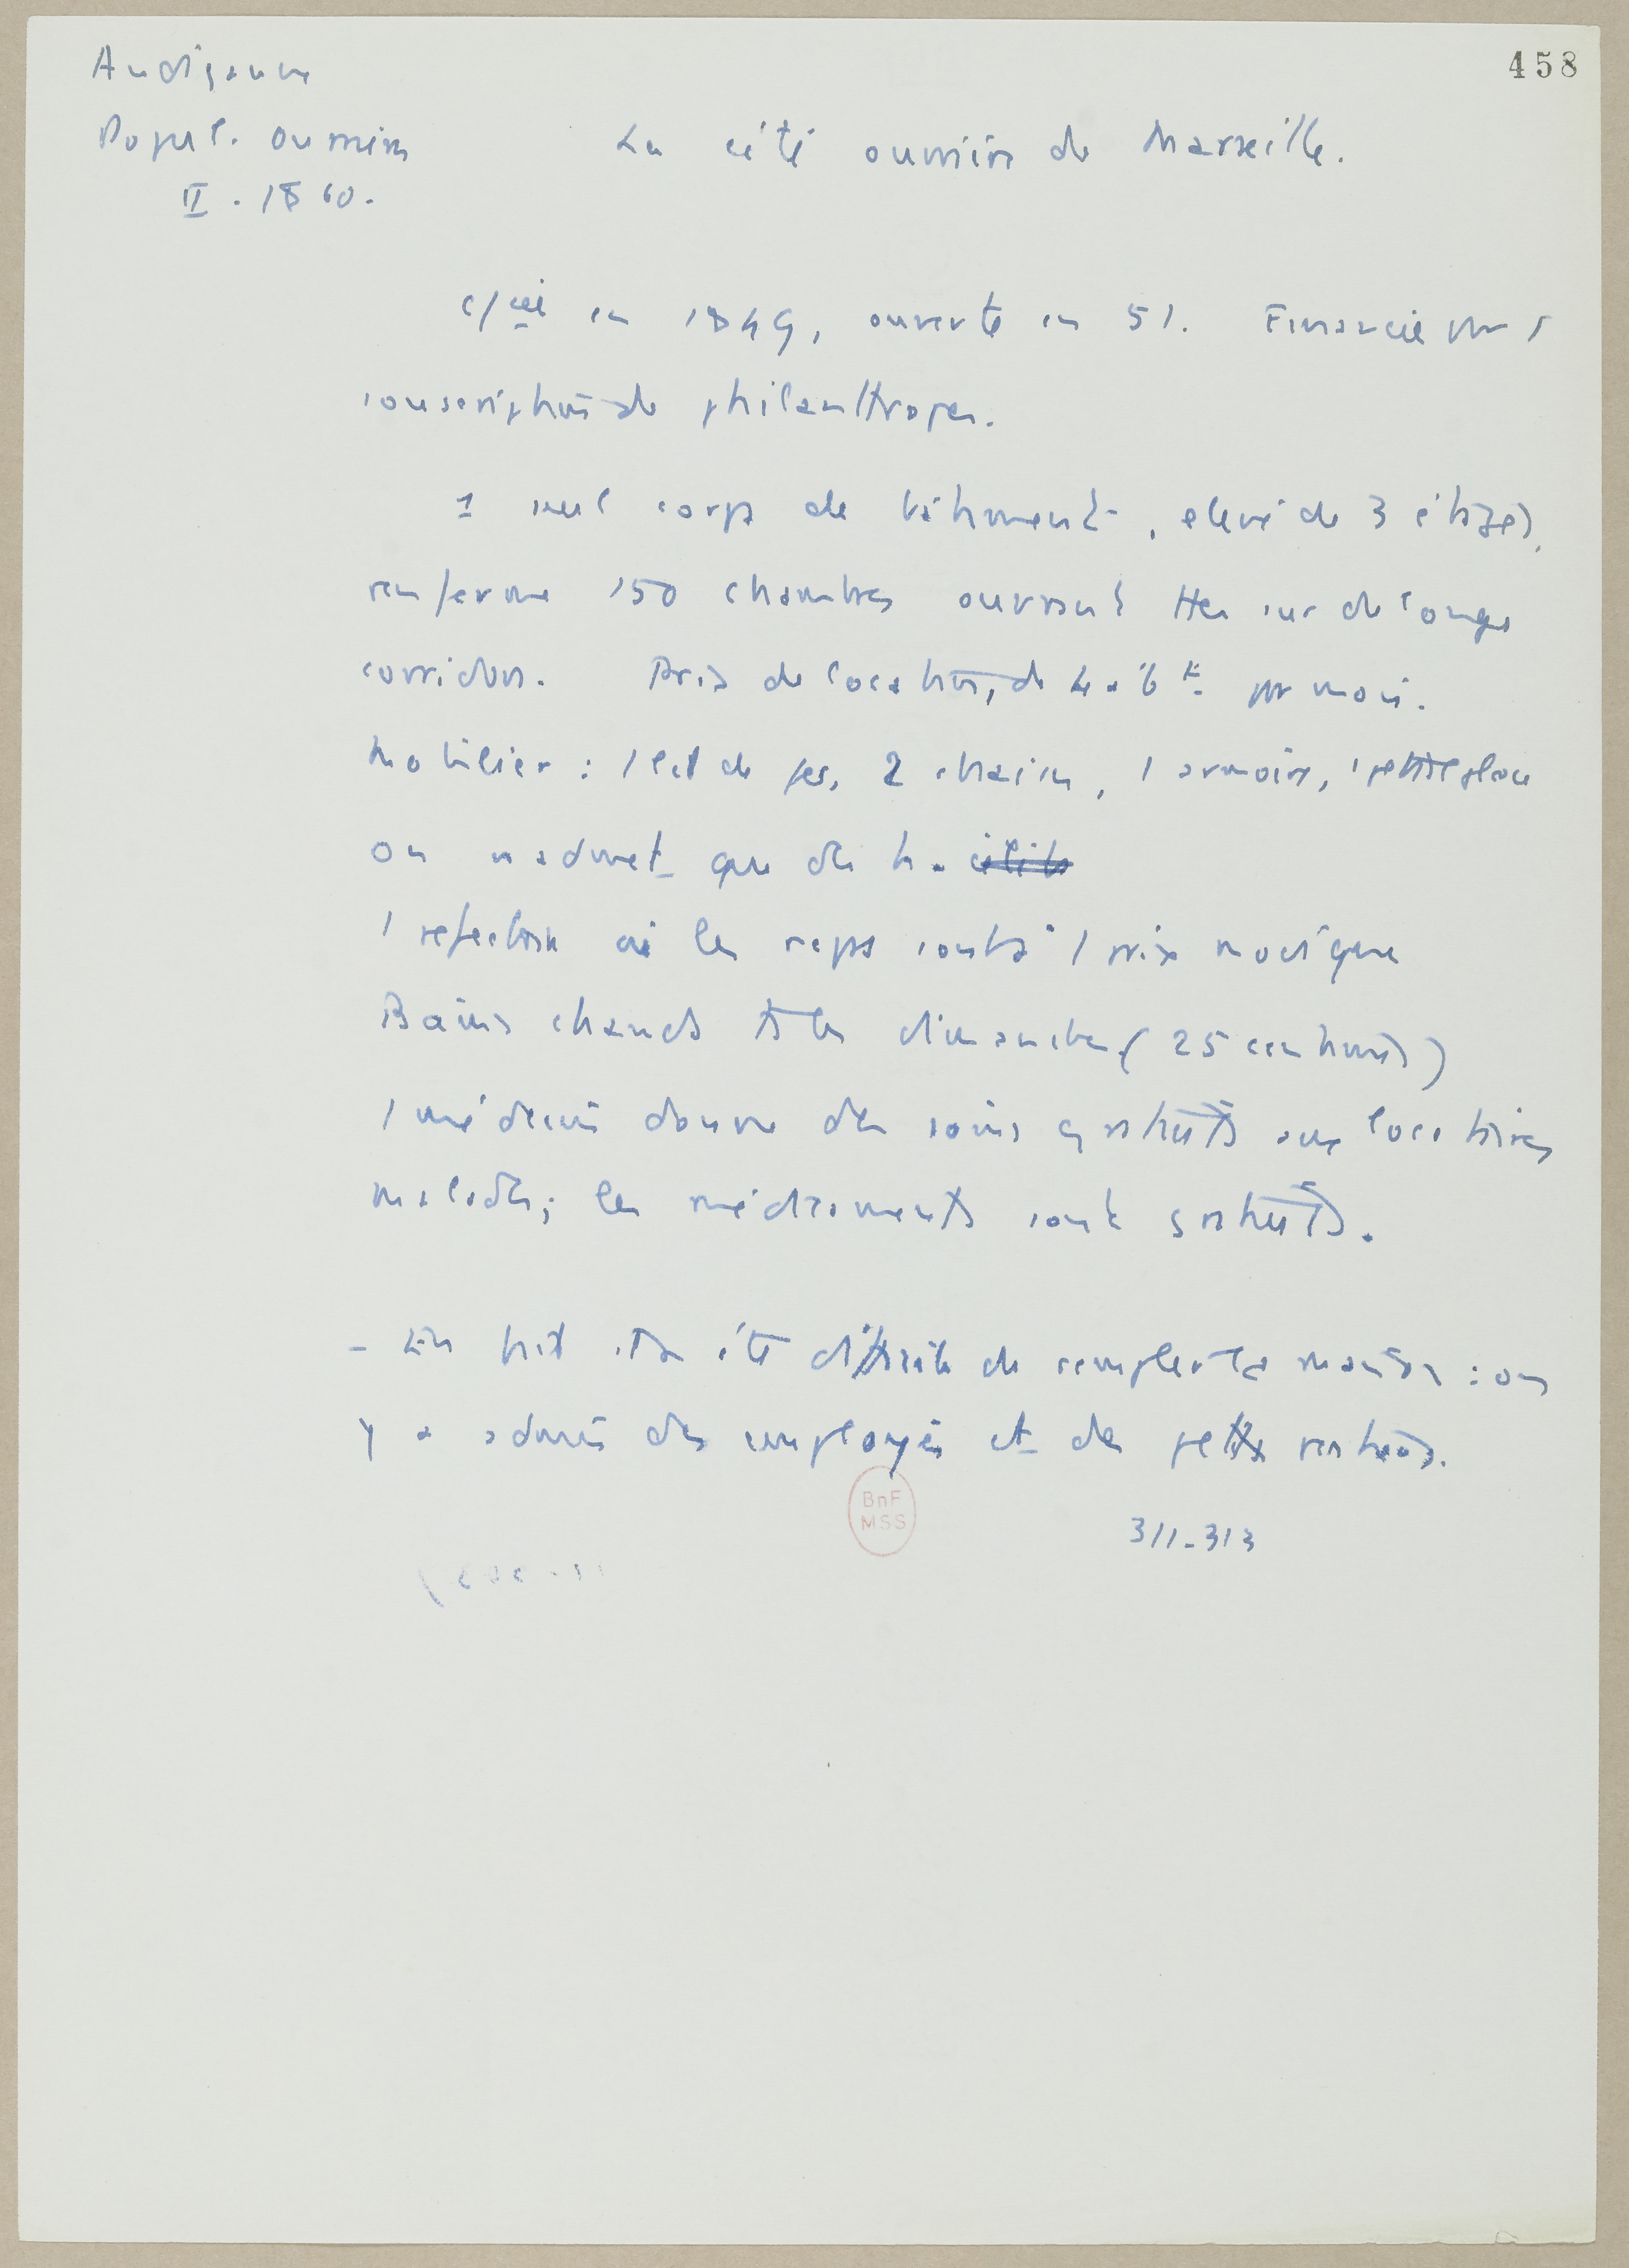 458
Audiganne
Popul. ouvrières
II. 1860.
La cité ouvrière de Marseille.
créée en 1849, ouverte en 51. Financée par
souscription de philanthropes.
1 seul corps de bâtiment, élevé de 3 étages,
renferme 150 chambres ouvrant ttes sur de longs
corridors. Prix de location, de 4 a 6 F. par mois.
Mobilier : 1 lit de fer, 2 chaises, 1 armoire, 1 petite glace
on n'admet que des h. 
1 réfectoire où les repas sont à 1 prix modique
Bains chauds ts les dimanches (25 centimes)
1 médecin donne des soins gratuits aux locataires
malades; les médicaments sont gratuits.
- En fait il a été difficile de remplir la maison : on
y a admis des employés et des petits rentiers.
311-313
BnF
MSS